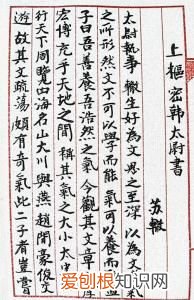 上樞密韓太尉書
蘇轍
太尉執事轍生好為文思之至深以為文者氣
之所形然文不可以學而能氣可以養而致孟
子曰吾善養吾浩然之氣今觀其文章寬厚
宏博充乎天地之間稱其氣之大小太史公
行天下周覽四海名山大川與燕趙間豪俊交
遊故其文疏蕩頗有奇氣此二子者豈嘗
爱刨根知识网